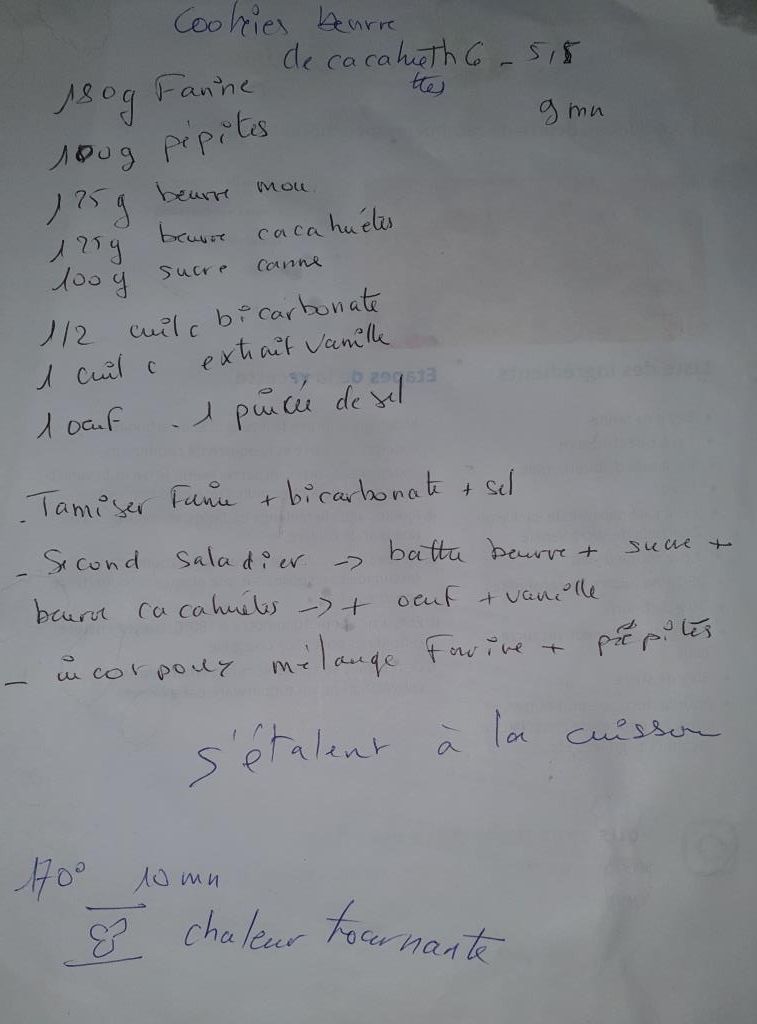 Cookies beurre
de cacahueTh 6 - 5,5
ttes
9 mn
180g Farine
100g pépites
125g beurre mou
125g beurre cacahuétes
100g sucre canne
1/2 cuil c bicarbonate
1 cuil c extrait vanille
1 oeuf - 1 pincée de sel
- Tamiser Farine + bicarbonate + sel
- Second saladier -> battre beurre + sucre +
beurre cacahuétes -> + oeuf + vanille
- incorporez mélange Farine + pépites
s'étalent à la cuisson
170° 10 mn
chaleur tournante